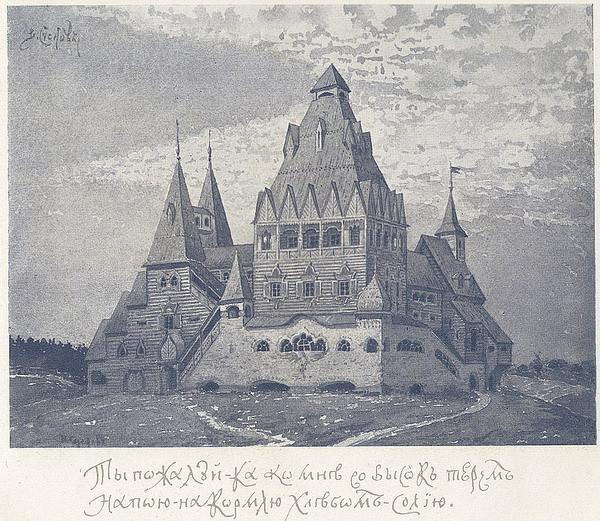 В. Сусловъ
Ты пожалуй-ка ко мнѣ во высокъ теремъ
Напою-накормлю хлѣбомъ-солію.